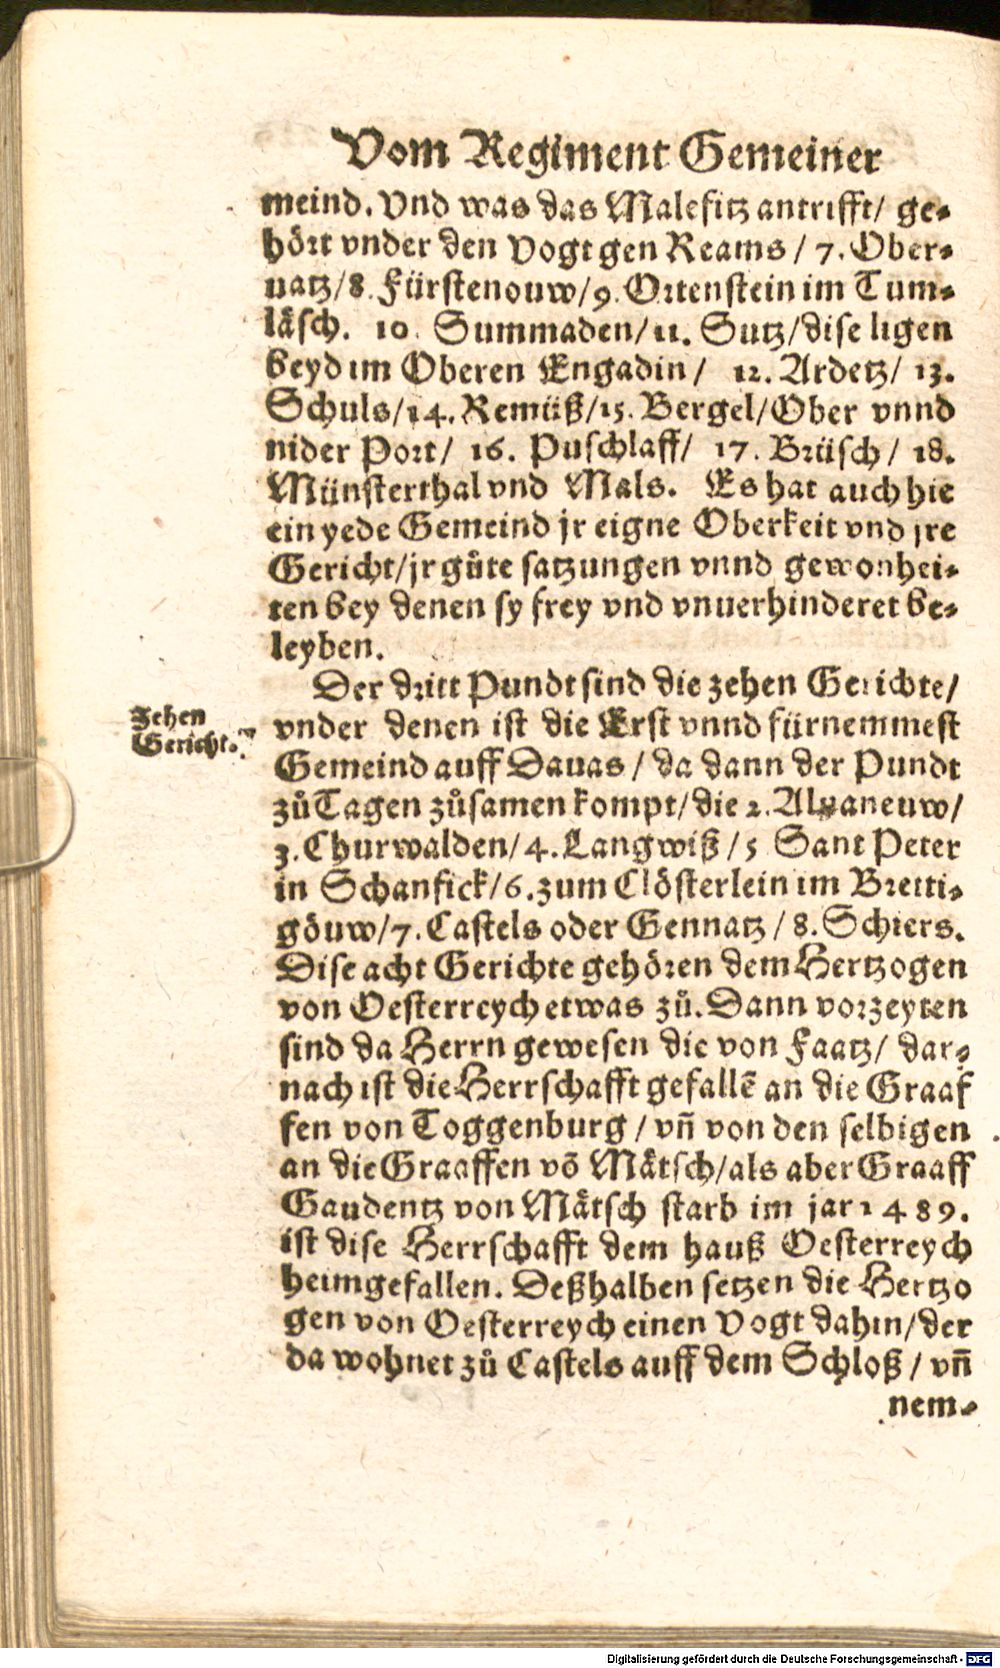 Vom Regiment Gemeiner
meind. Vnd was das Malefitz antrifft/ ge-
hört vnder den Vogt gen Reams / 7. Ober-
uatz/8. Fürstenouw/9. Ortenstein im Tum-
läsch. 10. Summaden/11. Sutz/dise ligen
beyd im Oberen Engadin / 12. Ardetz/ 13.
Schuls/14. Remüß/15. Bergel/Ober vnnd
nider Port/ 16. Puschlaff/ 17. Brüsch / 18.
Münsterthal vnd Mals. Es hat auch hie
ein yede Gemeind jr eigne Oberkeit vnd jre
Gericht/jr gůte satzungen vnnd gewonhei-
ten bey denen sy frey vnd vnuerhinderet be-
leyben.
Der dritt Pundt sind die zehen Gerichte/
Zehen
Gericht.
vnder denen ist die Erst vnnd fürnemmest
Gemeind auff Dauas / da dann der Pundt
zů Tagen zůsamen kompt/die 2. Aluaneuw/
3. Churwalden/4. Langwiß /5 Sant Peter
in Schanfick/6. zum Clösterlein im Bretti-
göuw/7. Castels oder Gennatz / 8. Schiers.
Dise acht Gerichte gehören dem Hertzogen
von Oesterreych etwas zů. Dann vorzeyten
sind da Herrn gewesen die von Faatz/ dar-
nach ist die Herrschafft gefallē an die Graaf
fen von Toggenburg / vn̄ von den selbigen
an die Graaffen vō Mätsch/als aber Graaff
Gaudentz von Mätsch starb im jar 1489.
ist dise Herrschafft dem hauß Oesterreych
heimgefallen. Deßhalben setzen die Hertzo
gen von Oesterreych einen Vogt dahin/der
da wohnet zů Castels auff dem Schloß / vn̄
nem-
Digitalisierung gefördert durch die Deutsche Forschungsgemeinschaft - DFG